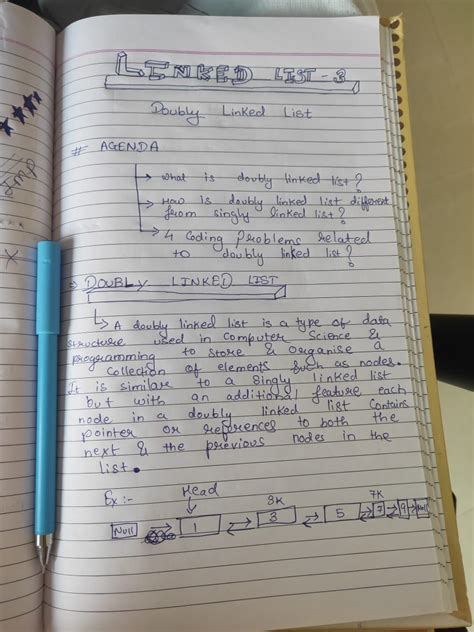 LINKED LIST - 3
Doubly Linked List
# AGENDA
→ What is doubly linked list?
→ How is doubly linked list different
from singly linked list?
→ 4 Coding Problems related
to doubly linked list?
→ DOUBLY LINKED LIST
↳ A doubly linked list is a type of data
structure used in Computer Science &
programming to store & organise a
collection of elements such as nodes.
It is similar to a singly linked list
but with an additional feature each
node in a doubly linked list contains
pointer or references to both the
next & the previous nodes in the
list.
Ex :- Head
3K 7K
Null 1 3 5 7 9 Null
Imp